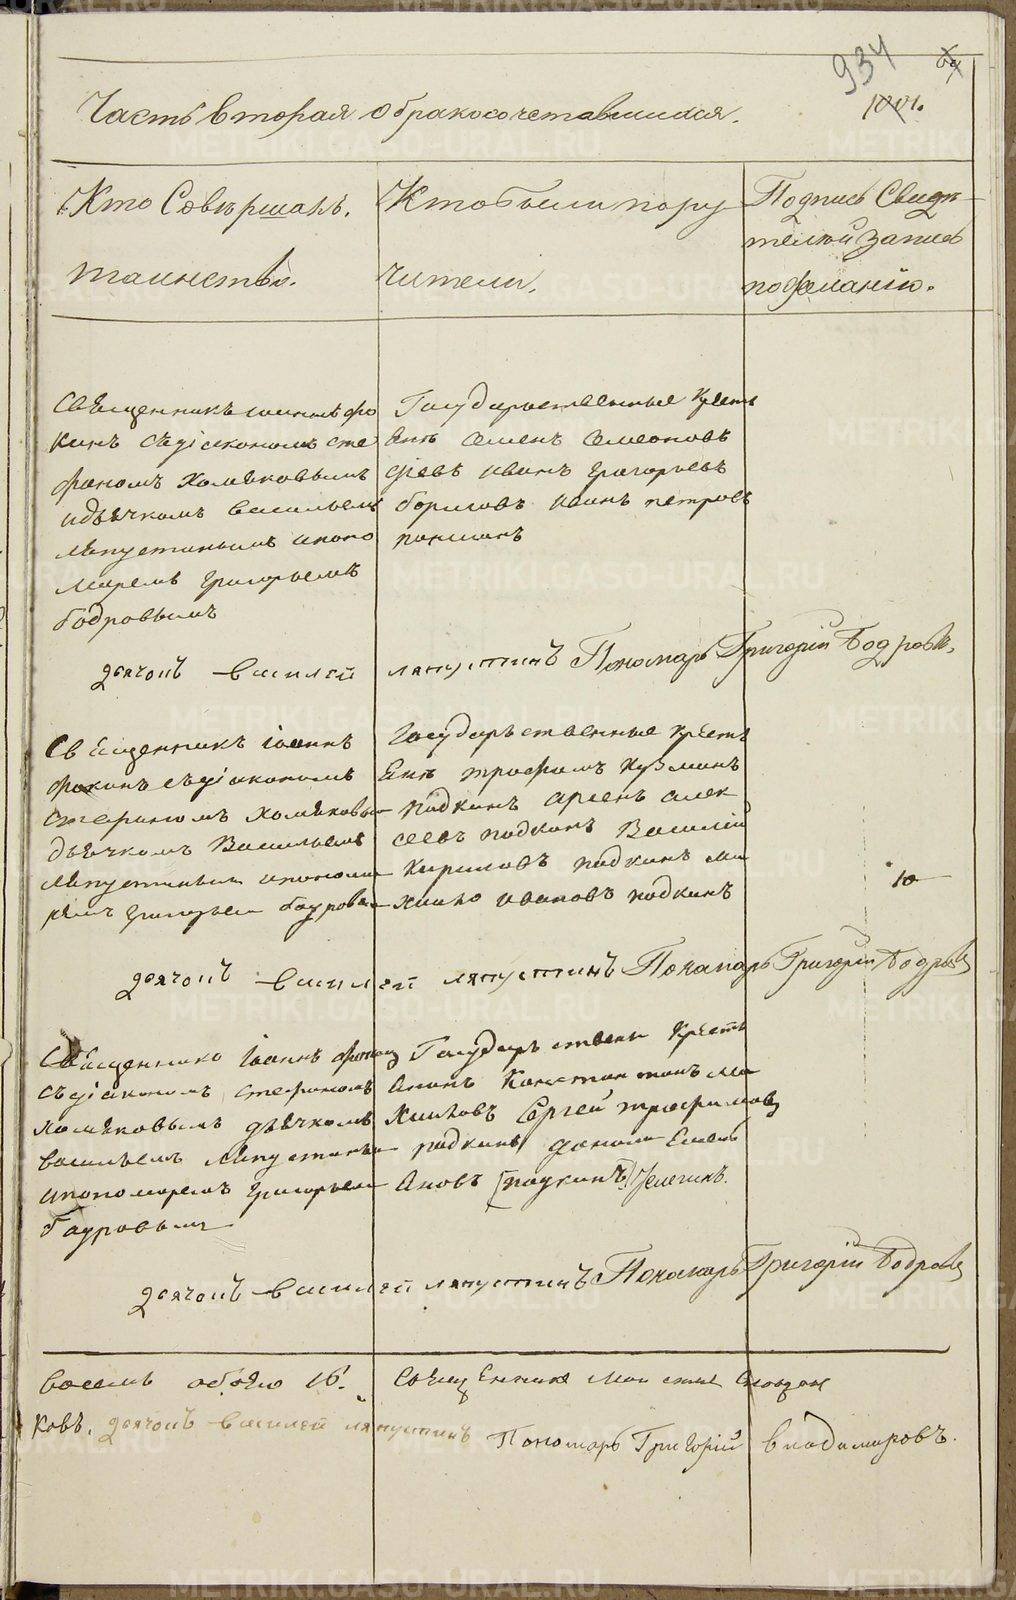 934
Часть вторая о бракосочетавшихся.
Кто Совершалъ
таинство.
Кто были пору
чители.
Подпись Свидѣ
телей записи
по желанію.
Священникъ іоаннъ фо
кинъ съ діакономъ сте
фаномъ Хомяковымъ
и дьячкомъ Васильемъ
Ляпустинымъ и поно
маремъ григорьемъ
бодровымъ
Государственные Крестя
Ане Семенъ Семеоновъ
иванъ григорьевъ
борисовъ иванъ петровъ
дьячокъ василей ляпустинъ Пономарь Григорій Бодровъ
Священникъ іоаннъ
фокинъ съ діакономъ
стефаномъ Хомяковы
дьячкомъ Васильемъ
Ляпустинымъ и понома
ремъ григорьем бодровым
Государственные Крестя
Ене трофимъ Кузминъ
подкинъ арсенъ алек
сеевъ подкинъ Василій
Кириловъ подкинъ ми
хаило ивановъ подкинъ
10
дьячокъ василей ляпустинъ Пономарь Григорій Бодровъ
Священникъ Іоаннъ фокинъ
съ діакономъ стефаномъ
Хомяковымъ дьячкомъ
васильемъ Ляпустинымъ
и пономаремъ григорьем
бодровымъ
Государственны Крестя
Анинъ Константинъ ми
Хаиловъ Сергей трофимовъ
подкинъ данила Емель
Ановъ [подкинъ]
дьячокъ василей ляпустинъ Пономарь Григорій Бодровъ
восемь обоего 16.
Священникъ
ковъ. дьячокъ василей ляпустинъ Пономарь Григорій владимировъ.
METRIKI.GASO-URAL.RU